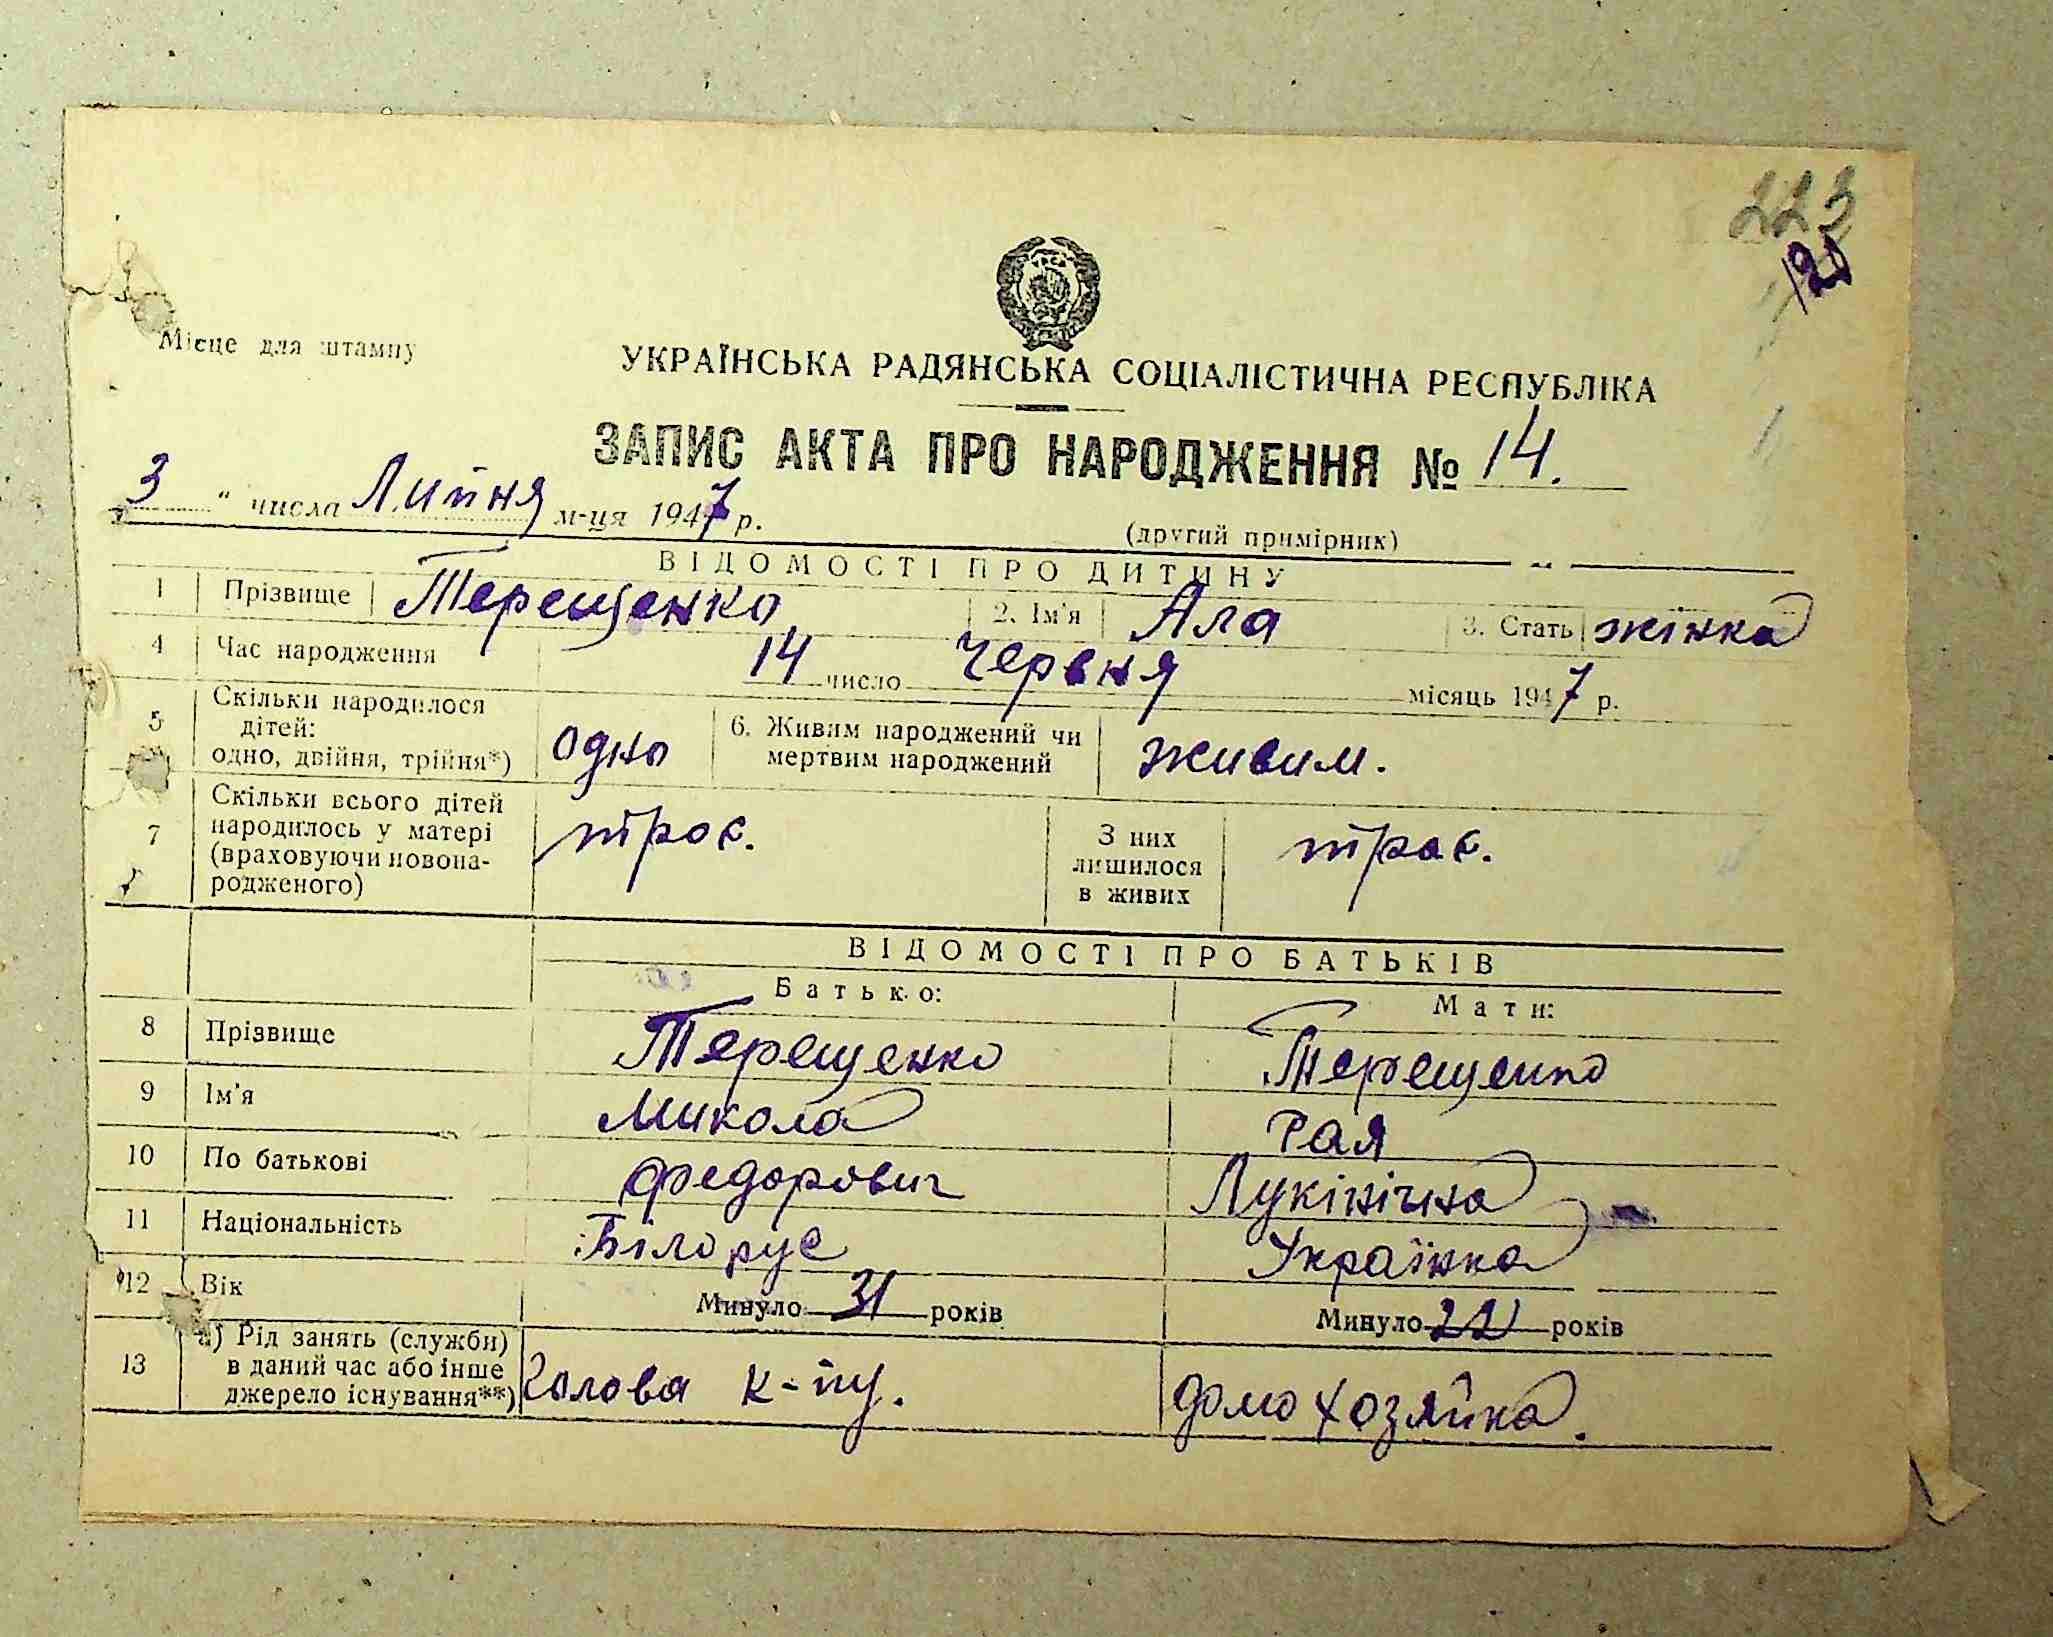 223
120
Місце для штампу
УКРАЇНСЬКА РАДЯНСЬКА СОЦІАЛІСТИЧНА РЕСПУБЛІКА
ЗАПИС АКТА ПРО НАРОДЖЕННЯ № 14.
3 " числа Липня м-ця 1947 р.
(другий примірник)
ВІДОМОСТІ ПРО ДИТИНУ
1 Прізвище Терещенко 2. Ім'я Ала 3. Стать жінка
4 Час народження 14 число червня місяць 1947 р.
5 Скільки народилося дітей: одно, двійня, трійня*) одно 6. Живим народжений чи мертвим народжений живим.
7 Скільки всього дітей народилось у матері (враховуючи новона-родженого) троє. З них лишилося в живих троє.
ВІДОМОСТІ ПРО БАТЬКІВ
Батько: Мати:
8 Прізвище Терещенко Терещенко
9 Ім'я Микола Рая
10 По батькові Федорович Лукінічна
11 Національність Білорус Українка
12 Вік Минуло 31 років Минуло 22 років
13 а) Рід занять (служби) в даний час або інше джерело існування**) Голова к-пу. домохозяйка.